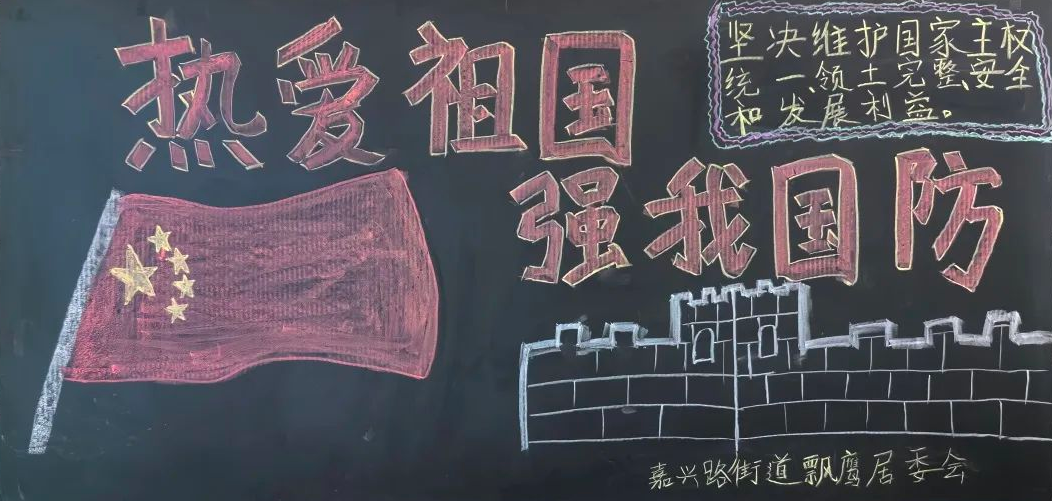 热爱祖国
强我国防
坚决维护国家主权
统一、领土完整、安全
和发展利益。
嘉兴路街道飘鹰居委会